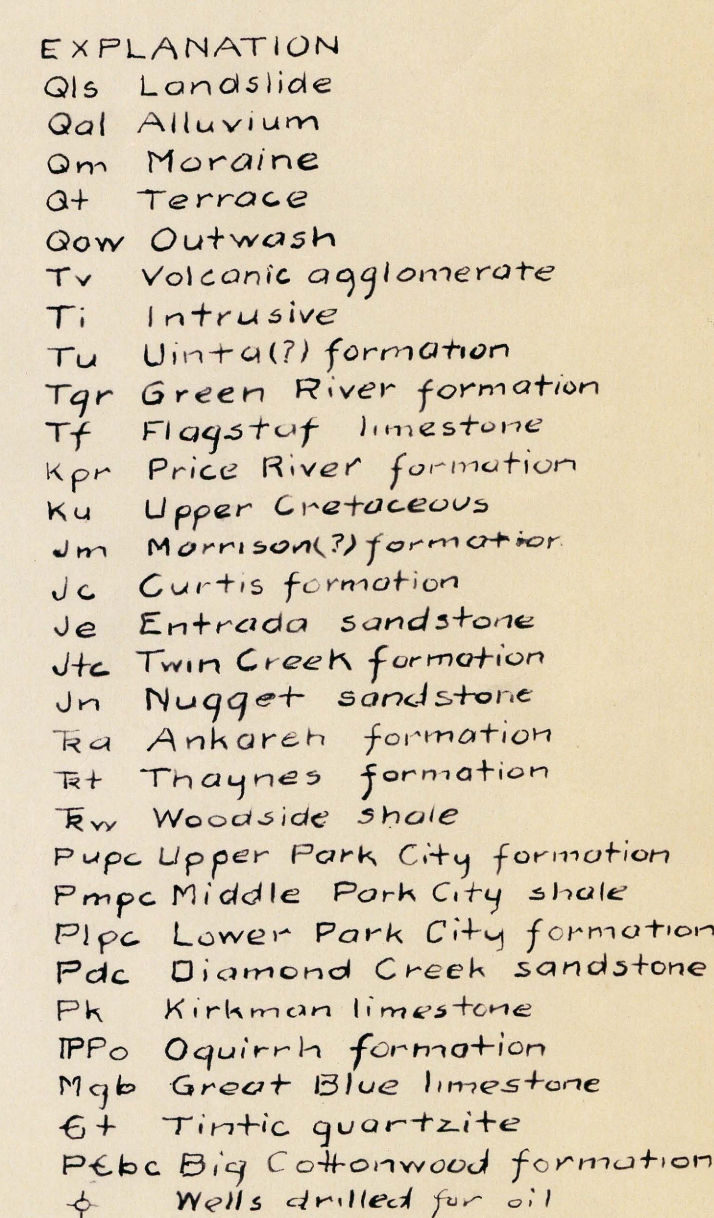 EXPLANATION
Qls Landslide
Qal Alluvium
Qm Moraine
Qt Terrace
Qow Outwash
Tv Volcanic agglomerate
Ti Intrusive
Tu Uinta(?) formation
Tgr Green River formation
Tf Flagstaf limestone
Kpr Price River formation
Ku Upper Cretaceous
Jm Morrison(?) formation
Jc Curtis formation
Je Entrada sandstone
Jtc Twin Creek formation
Jn Nugget sandstone
Ꞧa Ankareh formation
Ꞧt Thaynes formation
Ꞧw Woodside shale
Pupc Upper Park City formation
Pmpc Middle Park City shale
Plpc Lower Park City formation
Pdc Diamond Creek sandstone
Pk Kirkman limestone
ℙPo Oquirrh formation
Mgb Great Blue limestone
Єt Tintic quartzite
PЄbc Big Cottonwood formation
Wells drilled for oil